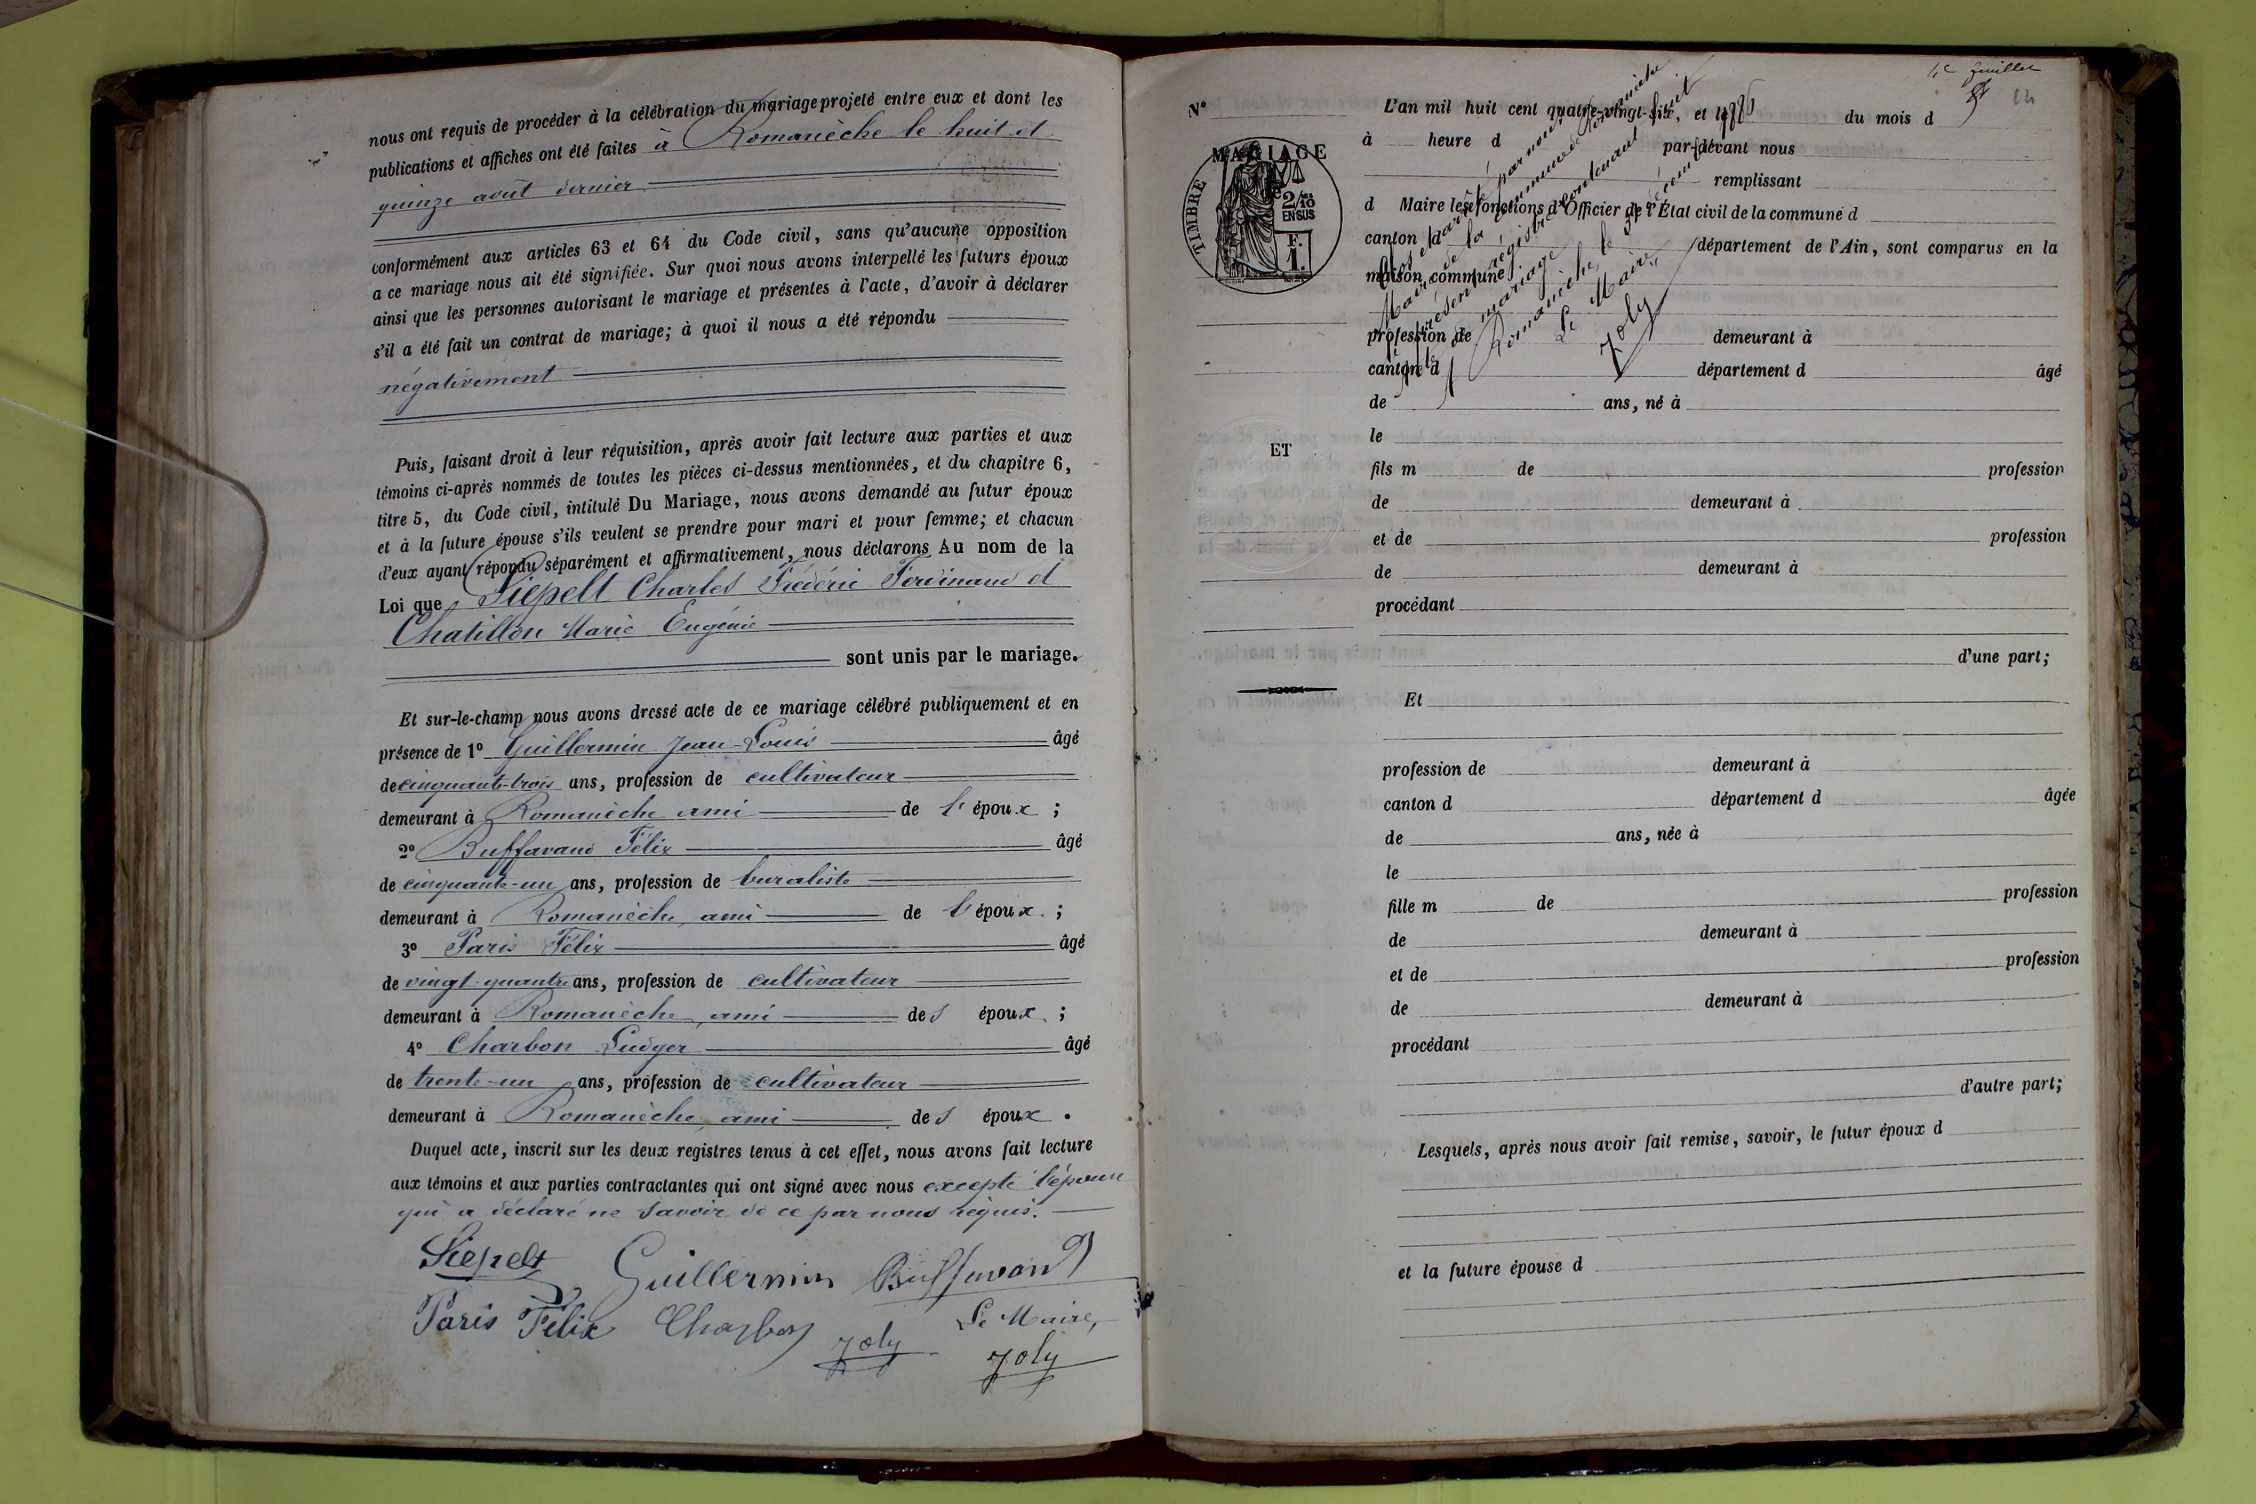 nous ont requis de procéder à la célébration du mariage projeté entre eux et dont les
publications et affiches ont été faites à Romanèche le huit et
quinze août dernier
conformément aux articles 63 et 64 du Code civil, sans qu'aucune opposition
a ce mariage nous ait été signifiée. Sur quoi nous avons interpellé les futurs époux
ainsi que les personnes autorisant le mariage et présentes à l'acte, d'avoir à déclarer
s'il a été fait un contrat de mariage; à quoi il nous a été répondu
négativement
Puis, faisant droit à leur réquisition, après avoir fait lecture aux parties et aux
témoins ci-après nommés de toutes les pièces ci-dessus mentionnées, et du chapitre 6,
titre 5, du Code civil, intitulé Du Mariage, nous avons demandé au futur époux
et à la future épouse s'ils veulent se prendre pour mari et pour femme; et chacun
d'eux ayant répondu séparément et affirmativement, nous déclarons Au nom de la
Loi que Siepelt Charles Frédéric Ferdinand et
Chatillon Marie Eugénie
sont unis par le mariage.
Et sur-le-champ nous avons dressé acte de ce mariage célébré publiquement et en
présence de 1º Guillermin Jean-Louis âgé
de cinquante-trois ans, profession de cultivateur
demeurant à Romanèche ami de l'époux ;
2º Buffavand Félix âgé
de cinquante-un ans, profession de buraliste
demeurant à Romanèche, ami de l'époux ;
3º Paris Félix âgé
de vingt-quatre ans, profession de cultivateur
demeurant à Romanèche, ami des époux ;
4º Charbon Ludger âgé
de trente-un ans, profession de cultivateur
demeurant à Romanèche, ami des époux .
Duquel acte, inscrit sur les deux registres tenus à cet effet, nous avons fait lecture
aux témoins et aux parties contractantes qui ont signé avec nous excepté l'épouse
qui a déclaré ne savoir de ce par nous requis.
Siepelt Guillermin Buffavand
Paris Félix Charbon Joly Le Maire,
Joly
4e feuillet
Nº
MARIAGE
TIMBRE
2/10
EN SUS
F.
1.
ET
L'an mil huit cent quatre-vingt-six, et le du mois d
à heure d par-devant nous
remplissant
d Maire les fonctions d'Officier de l'État civil de la commune d
canton d département de l'Ain, sont comparus en la
maison commune
profession de demeurant à
canton d département d âgé
de ans, né à
le
fils m de profession
de demeurant à
et de profession
de demeurant à
procédant
d'une part;
Et
profession de demeurant à
canton d département d âgée
de ans, née à
le
fille m de profession
de demeurant à
et de profession
de demeurant à
procédant
d'autre part;
Lesquels, après nous avoir fait remise, savoir, le futur époux d
et la future épouse d
Clos et arrêté par nous
Maire de la commune de Romanèche
le présent registre contenant huit
mariages
Romanèche, le 31 décembre 1886
Le Maire,
Joly